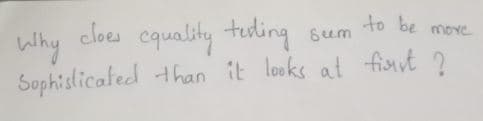 Why does equality testing seem to be more
Sophisticated than it looks at first ?